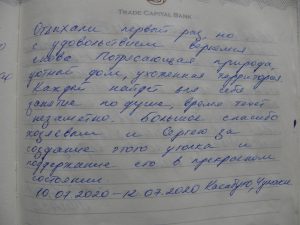 TRADE CAPITAL BANK
Отдыхали первый раз, но
с удовольствием вернемся
снова. Потрясающая природа,
уютный дом, ухоженная территория.
Каждый найдет для себя
занятие по душе, время течет
незаметно. Большое спасибо
хозяевам и Сергею за
создание этого уголка и
поддержание его в прекрасном
состоянии.
10.07.2020-12.07.2020